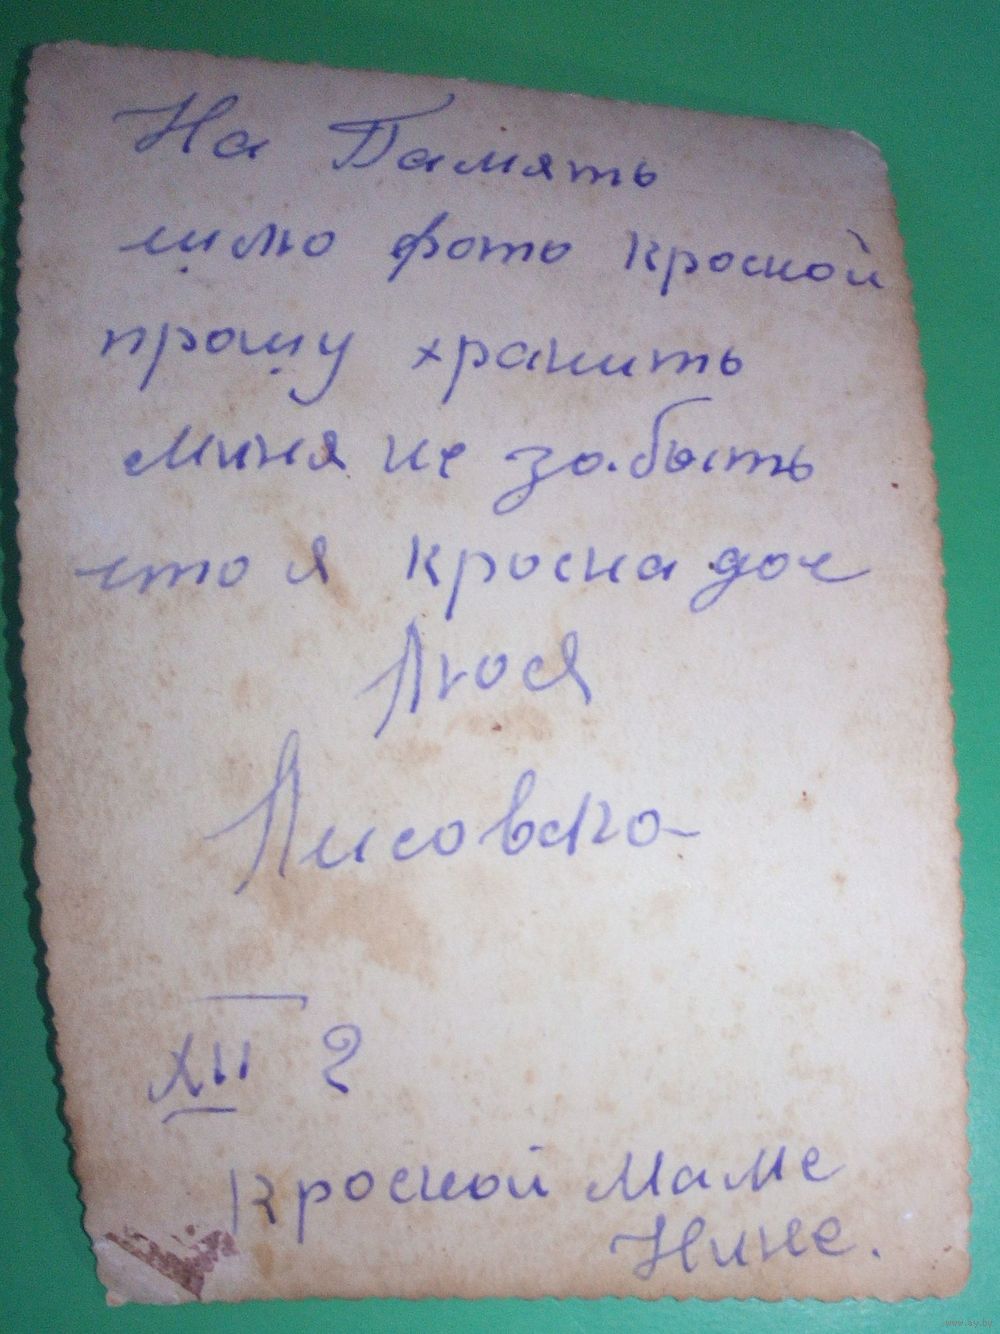 На Память
шлю фото кроской
прошу хранить
миня не забыть
что я кросна доч
Люся
Лисовско
XII 2
Кроской маме
Нине.
www.ay.by